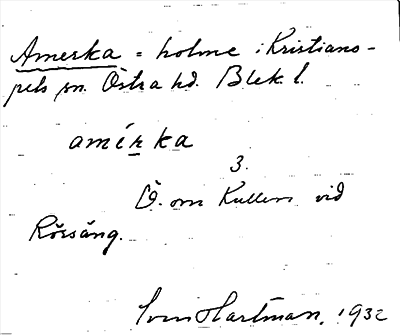 Amerka = holme i Kristiano-
pels sn. Östra hd. Blek. l.
amírka
3.
Ö. om Kullen vid
Rörsäng.
Sven Hartman, 1932